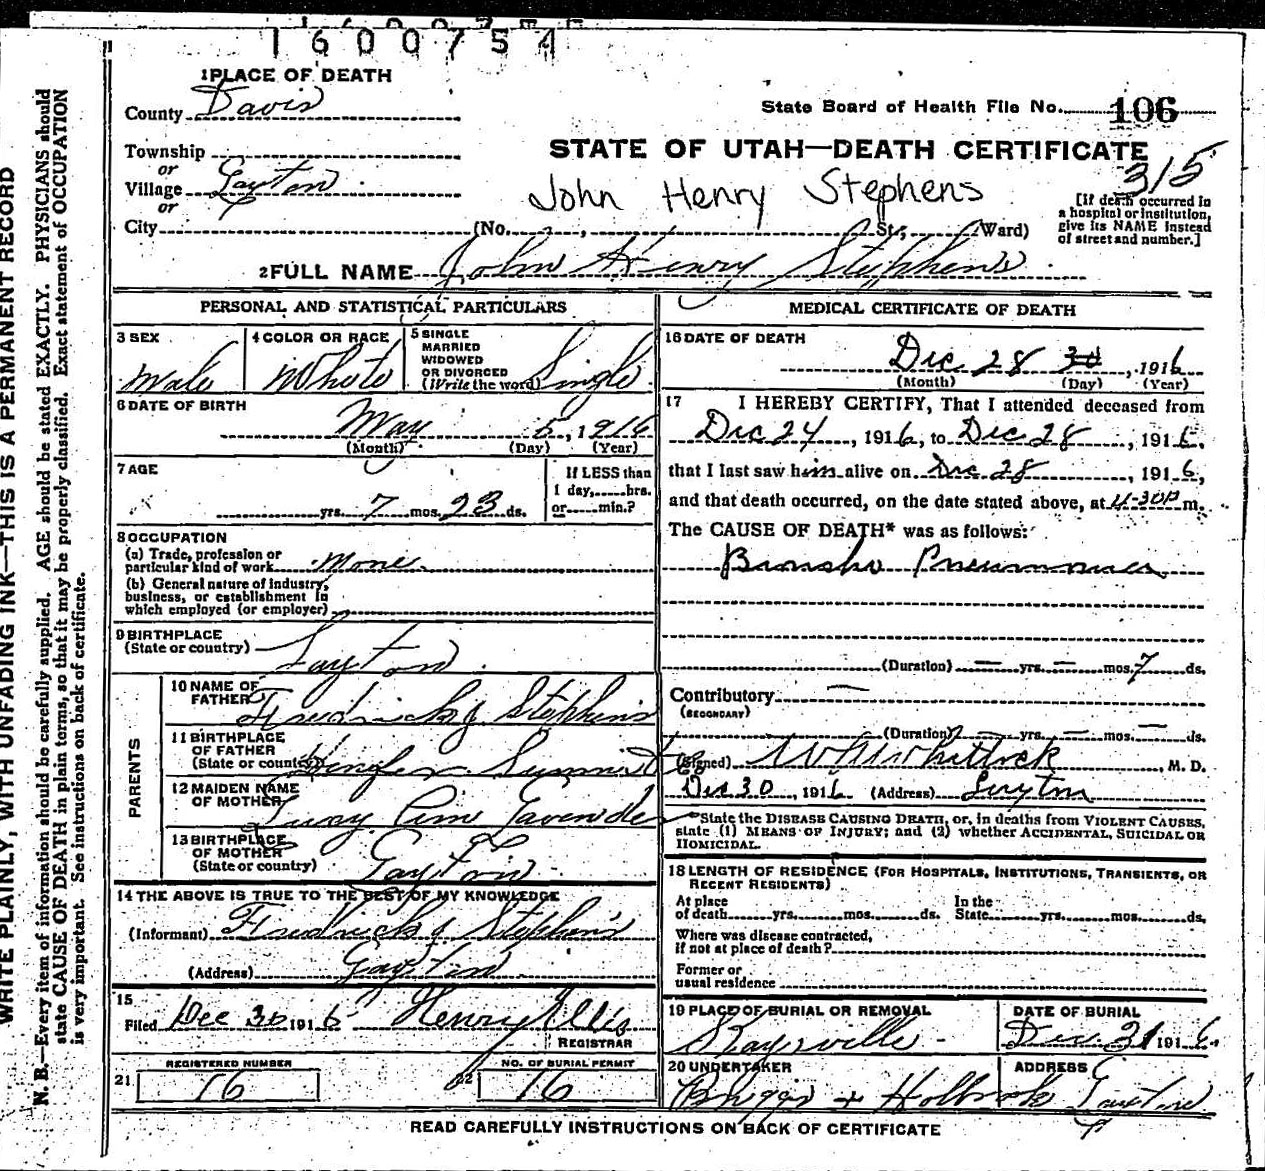 1600754
1 PLACE OF DEATH
County Davis
State Board of Health File No. 106
Township
or
Village Layton
or
City (No. St., Ward)
STATE OF UTAH—DEATH CERTIFICATE
315
John Henry Stephens
[If death occurred in
a hospital or institution,
give its NAME instead
of street and number.]
2 FULL NAME John Henry Stephens
PERSONAL AND STATISTICAL PARTICULARS
3 SEX
Male
4 COLOR OR RACE
White
5 SINGLE
MARRIED
WIDOWED
OR DIVORCED
(Write the word) Single
6 DATE OF BIRTH
May 5, 1916
(Month) (Day) (Year)
7 AGE
yrs. 7 mos. 23 ds.
If LESS than
1 day, hrs.
or min.?
8 OCCUPATION
(a) Trade, profession or
particular kind of work None
(b) General nature of industry,
business, or establishment in
which employed (or employer)
9 BIRTHPLACE
(State or country) Layton
PARENTS
10 NAME OF
FATHER Fredrick J Stephens
11 BIRTHPLACE
OF FATHER
(State or country)
12 MAIDEN NAME
OF MOTHER
13 BIRTHPLACE
OF MOTHER
(State or country) Layton
14 THE ABOVE IS TRUE TO THE BEST OF MY KNOWLEDGE
(Informant) Fredrick J Stephens
(Address) Layton
15
Filed Dec 30 1916 Henry Ellis
REGISTRAR
REGISTERED NUMBER
21 16
NO. OF BURIAL PERMIT
22 16
MEDICAL CERTIFICATE OF DEATH
16 DATE OF DEATH
Dec 28 30, 1916
(Month) (Day) (Year)
17 I HEREBY CERTIFY, That I attended deceased from
Dec 24, 1916, to Dec 28, 1916,
that I last saw him alive on Dec 28, 1916,
and that death occurred, on the date stated above, at 4-30P m.
The CAUSE OF DEATH* was as follows:
Broncho Pneumonia
(Duration) — yrs. — mos. 7 ds.
Contributory —
(SECONDARY)
(Duration) — yrs. — mos. — ds.
(Signed) Whittock, M. D.
Dec 30, 1916 (Address) Layton
*State the DISEASE CAUSING DEATH, or, in deaths from VIOLENT CAUSES,
state (1) MEANS OF INJURY; and (2) whether ACCIDENTAL, SUICIDAL OR
HOMICIDAL.
18 LENGTH OF RESIDENCE (FOR HOSPITALS, INSTITUTIONS, TRANSIENTS, OR
RECENT RESIDENTS)
At place
of death yrs. mos. ds.
In the
State yrs. mos. ds.
Where was disease contracted,
if not at place of death?
Former or
usual residence
19 PLACE OF BURIAL OR REMOVAL
Kaysville
DATE OF BURIAL
Dec. 31 1916
20 UNDERTAKER
Briggs + Holbrook
ADDRESS
Layton
READ CAREFULLY INSTRUCTIONS ON BACK OF CERTIFICATE
WRITE PLAINLY, WITH UNFADING INK—THIS IS A PERMANENT RECORD
N. B.—Every item of information should be carefully supplied. AGE should be stated EXACTLY. PHYSICIANS should
state CAUSE OF DEATH in plain terms, so that it may be properly classified. Exact statement of OCCUPATION
is very important. See instructions on back of certificate.